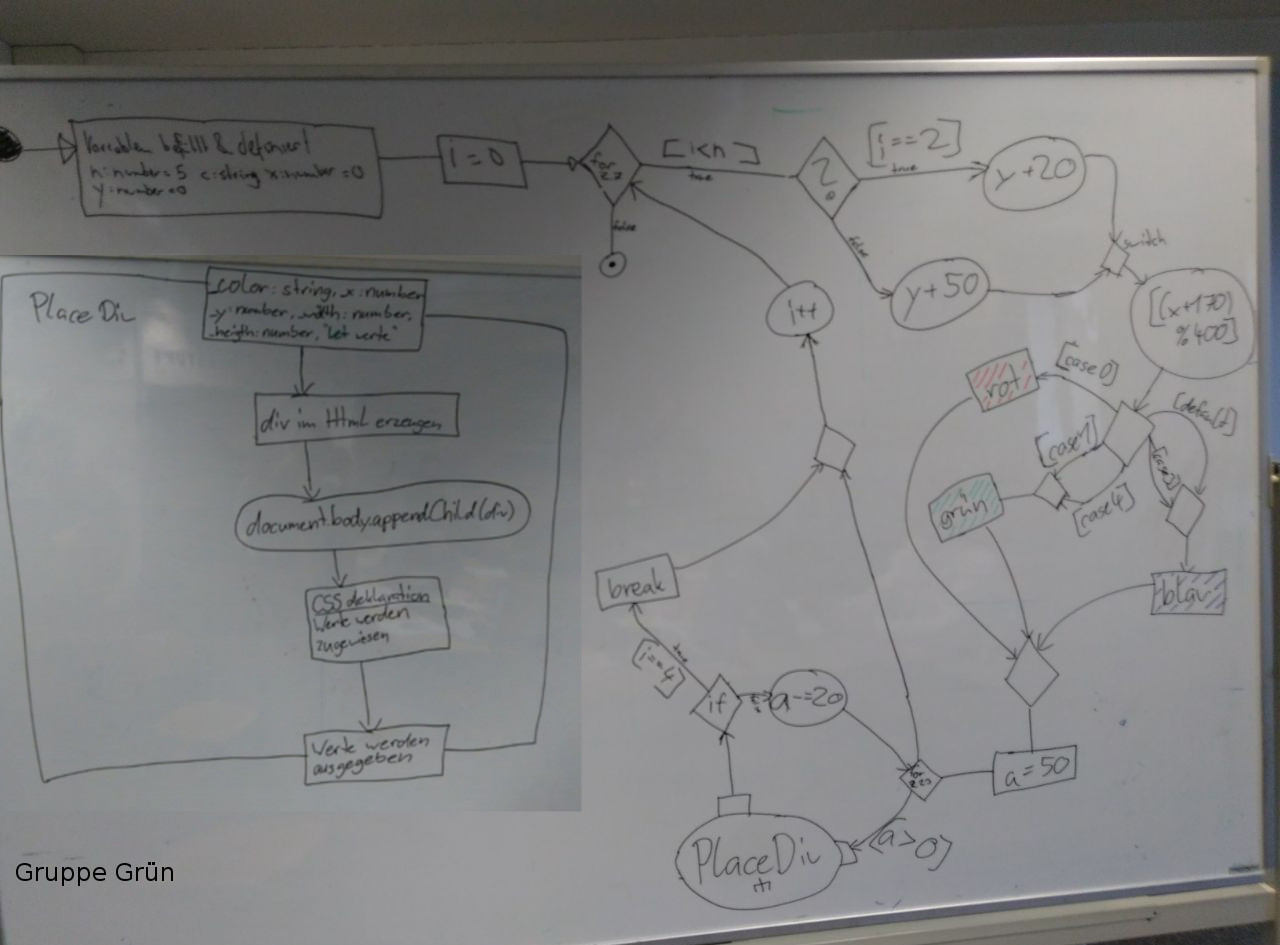 n:number = 5 c:string x:number = 0
y:number = 0
i = 0
for
[i<n]
true
false
?
[i==2]
true
false
y+20
y+50
switch
[(x+170)
%400]
i++
[case 0]
rot
[default]
[case 1]
[case 4]
[case 3]
grün
blau
break
true
[i==4]
if
a-=20
for
a=50
[a>0]
PlaceDiv
PlaceDiv
_color: string, _x: number
_y: number, _width: number,
_heigth: number, "Let werte"
div im Html erzeugen
document.body.appendChild(div)
CSS deklaration
Werte werden
zugewiesen
Werte werden
ausgegeben
Gruppe Grün